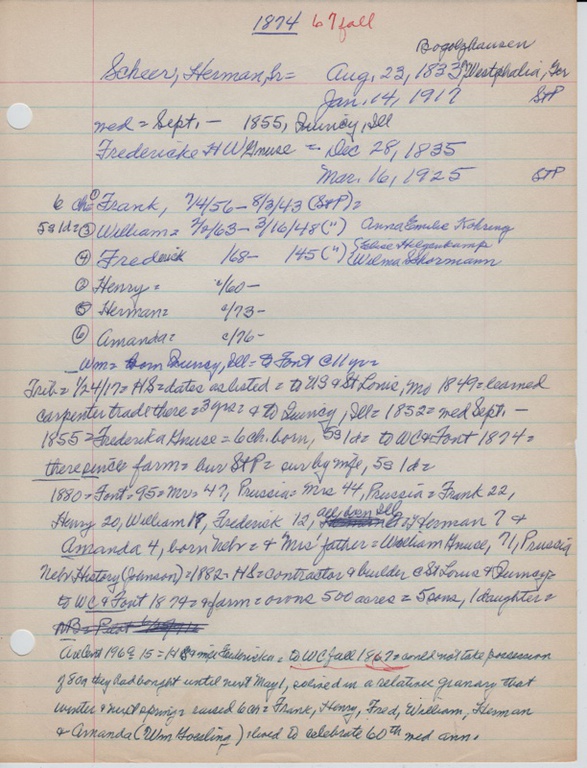 1874 67 fall
Bogolzhausen
Scheer, Herman, Sr = Aug. 23, 1833 Westphalia, Ger
Jan. 14, 1917 StP
med = Sept. — 1855, Quincy, Ill
Fredericke H W Gnuse — Dec 28, 1835
Mar. 16, 1925 StP
6 ch = ① Frank, 7/4/56 – 8/3/43 (StP) =
5s 1d = ③ William = 7/2/63 – 3/16/48 (") Anna Emilie Kohring
④ Frederick 168 – 145 (") Wilma Schormann
② Henry = c/60 –
⑤ Herman = c/73 –
⑥ Amanda = c/76 –
Wm = born Quincy, Ill = to Font c 11 yr =
Trib = 1/24/17 = HS = dates as listed = to US & St Louis, Mo 1849 = learned
carpenter trade there = 3 yrs = & to Quincy, Ill = 1852 = med Sept. —
1855 = Frederika Gnuse = 6 ch. born, 5s 1d = to WC & Font 1874 =
there since = farm = bur StP = sur by wife, 5s 1d =
1880 = Font = 95 = Mr = 47, Prussia = Mrs 44, Prussia = Frank 22,
Henry 20, William 17, Frederick 12, all born Ill = Herman 7 &
Amanda 4, born Nebr = & 'Mrs' father = William Gnuse, 71, Prussia
Nebr History (Johnson) = 1882 = HS = contractor & builder c St Louis & Quincy =
to WC & Font 1874 = & farm = owns 500 acres = 5 sons, 1 daughter =
1969 15 = H S & wife Frederika = to WC fall 1867 = could not take possession
of 80a they had bought until next May 1, so lived in a relatives granary that
winter & next spring = raised 6 ch = Frank, Henry, Fred, William, Herman
& Amanda (Wm Goesling) = lived to celebrate 60th wed ann.